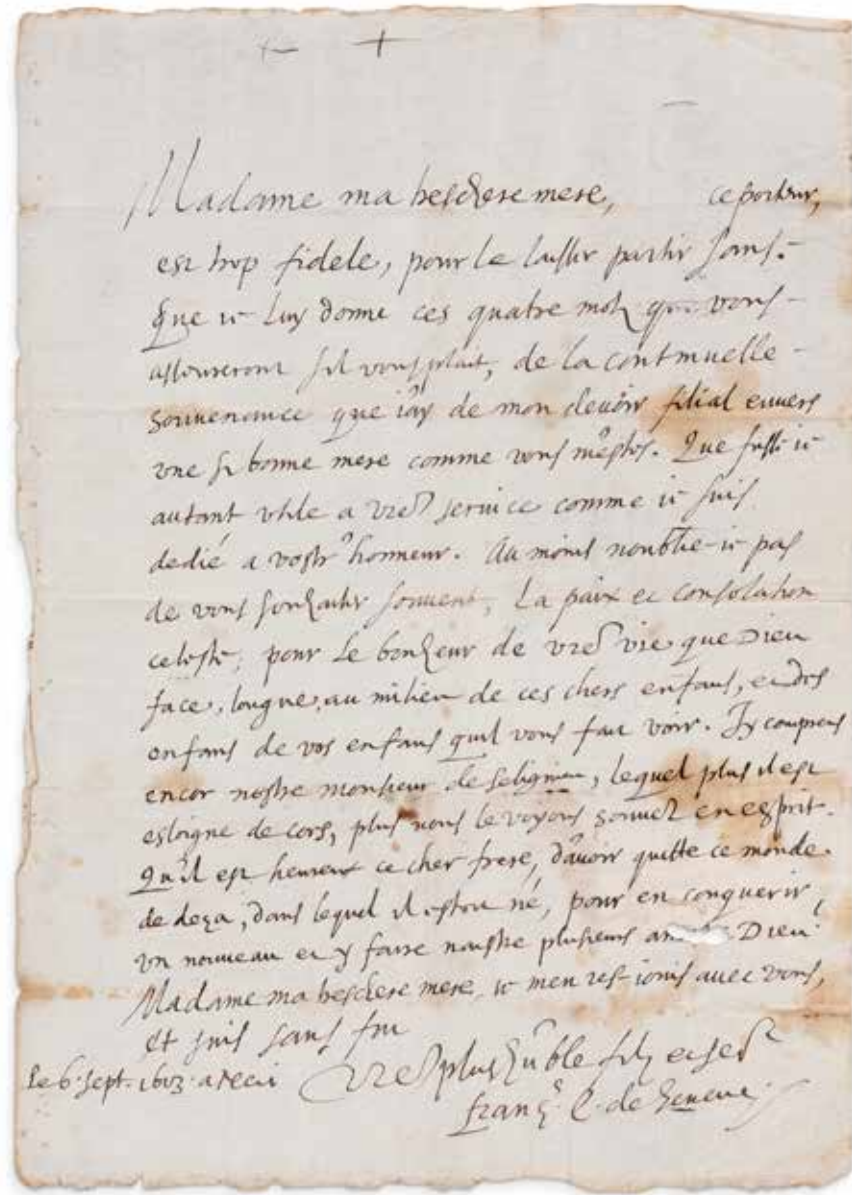 Madame ma treschere mere, ce porteur,
est trop fidele, pour le laisser partir sans
que ie luy donne ces quatre motz qui vous
asseureront sil vous plait, de la continuelle
souvenance que i'ay de mon devoir filial envers
une si bonne mere comme vous m'estes. Que fusse ie
autant utile a vre service comme ie suis
dedié a vostr'honneur. Au moins n'oublie-ie pas
de vous souhaiter souvent, La paix et consolation
celeste, pour le bonheur de vre vie que Dieu
face, longue, au milieu de ces chers enfans, et des
enfans de vos enfans quil vous fait voir. Jy comprens
encor nostre monsieur de , lequel plus il est
esloigne de cors, plus nous le voyons souvet en esprit.
Qu'il est heureux ce cher frere, d'avoir quitte ce monde
de deça, dans lequel il estoit né, pour en conquerir
un nouveau et y faire naistre plusieurs Dieu
Madame ma treschere mere, ie men res-iouis avec vous,
et suis sans fin
Vre plus hûble filz et ser
Le 6 sept. a Neci
Franç. E. de Geneve